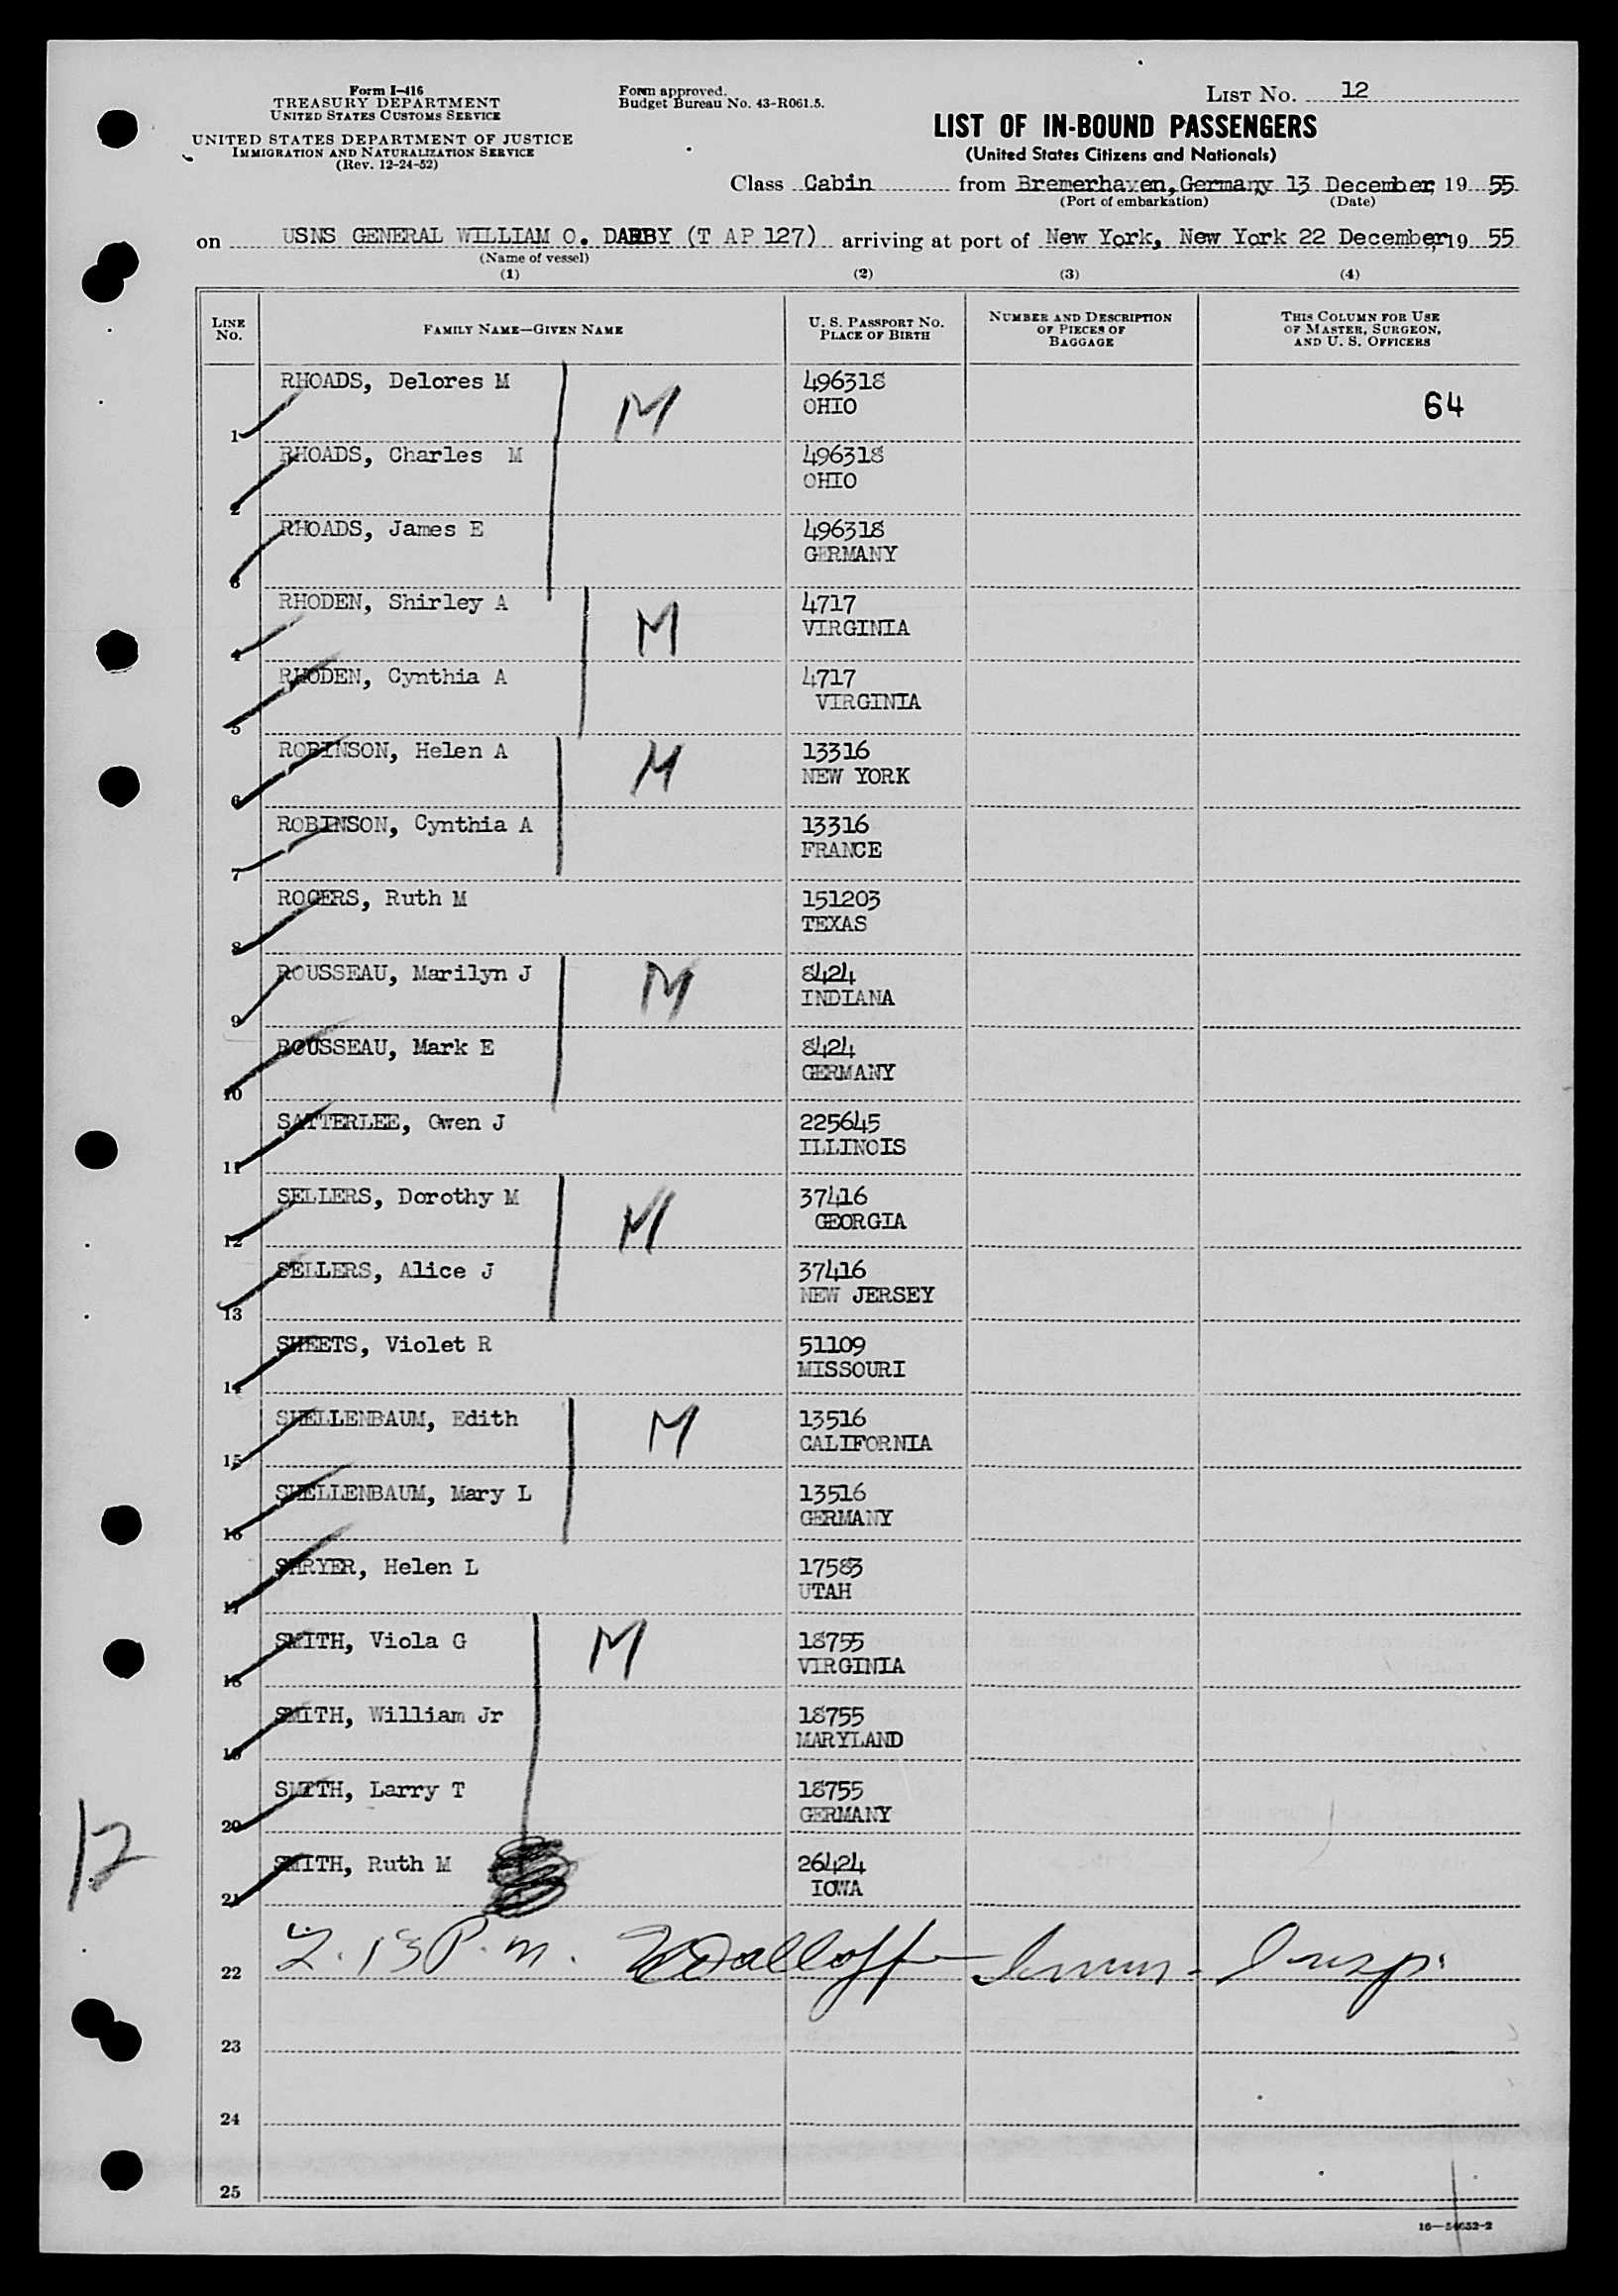 Form I-416
TREASURY DEPARTMENT
UNITED STATES CUSTOMS SERVICE
UNITED STATES DEPARTMENT OF JUSTICE
IMMIGRATION AND NATURALIZATION SERVICE
(Rev. 12-24-52)
Form approved.
Budget Bureau No. 43-R061.5.
LIST No. 12
LIST OF IN-BOUND PASSENGERS
(United States Citizens and Nationals)
Class Cabin from Bremerhaven, Germany 13 December, 19 55
(Port of embarkation) (Date)
on USNS GENERAL WILLIAM O. DARBY (T AP 127) arriving at port of New York, New York 22 December, 19 55
(Name of vessel)
(1) (2) (3) (4)
LINE No. FAMILY NAME—GIVEN NAME U. S. PASSPORT No. PLACE OF BIRTH NUMBER AND DESCRIPTION OF PIECES OF BAGGAGE THIS COLUMN FOR USE OF MASTER, SURGEON, AND U. S. OFFICERS
1 RHOADS, Delores M M 496318 OHIO 64
2 RHOADS, Charles M 496318 OHIO
3 RHOADS, James E 496318 GERMANY
4 RHODEN, Shirley A M 4717 VIRGINIA
5 RHODEN, Cynthia A 4717 VIRGINIA
6 ROBINSON, Helen A M 13316 NEW YORK
7 ROBINSON, Cynthia A 13316 FRANCE
8 ROGERS, Ruth M 151203 TEXAS
9 ROUSSEAU, Marilyn J M 8424 INDIANA
10 ROUSSEAU, Mark E 8424 GERMANY
11 SATTERLEE, Gwen J 225645 ILLINOIS
12 SELLERS, Dorothy M M 37416 GEORGIA
13 SELLERS, Alice J 37416 NEW JERSEY
14 SHEETS, Violet R 51109 MISSOURI
15 SHELLENBAUM, Edith M 13516 CALIFORNIA
16 SHELLENBAUM, Mary L 13516 GERMANY
17 SHRYER, Helen L 17583 UTAH
18 SMITH, Viola G M 18755 VIRGINIA
19 SMITH, William Jr 18755 MARYLAND
20 SMITH, Larry T 18755 GERMANY
21 SMITH, Ruth M 26424 IOWA
12
22 2.13 P.m. Immn. Insp.
23
24
25